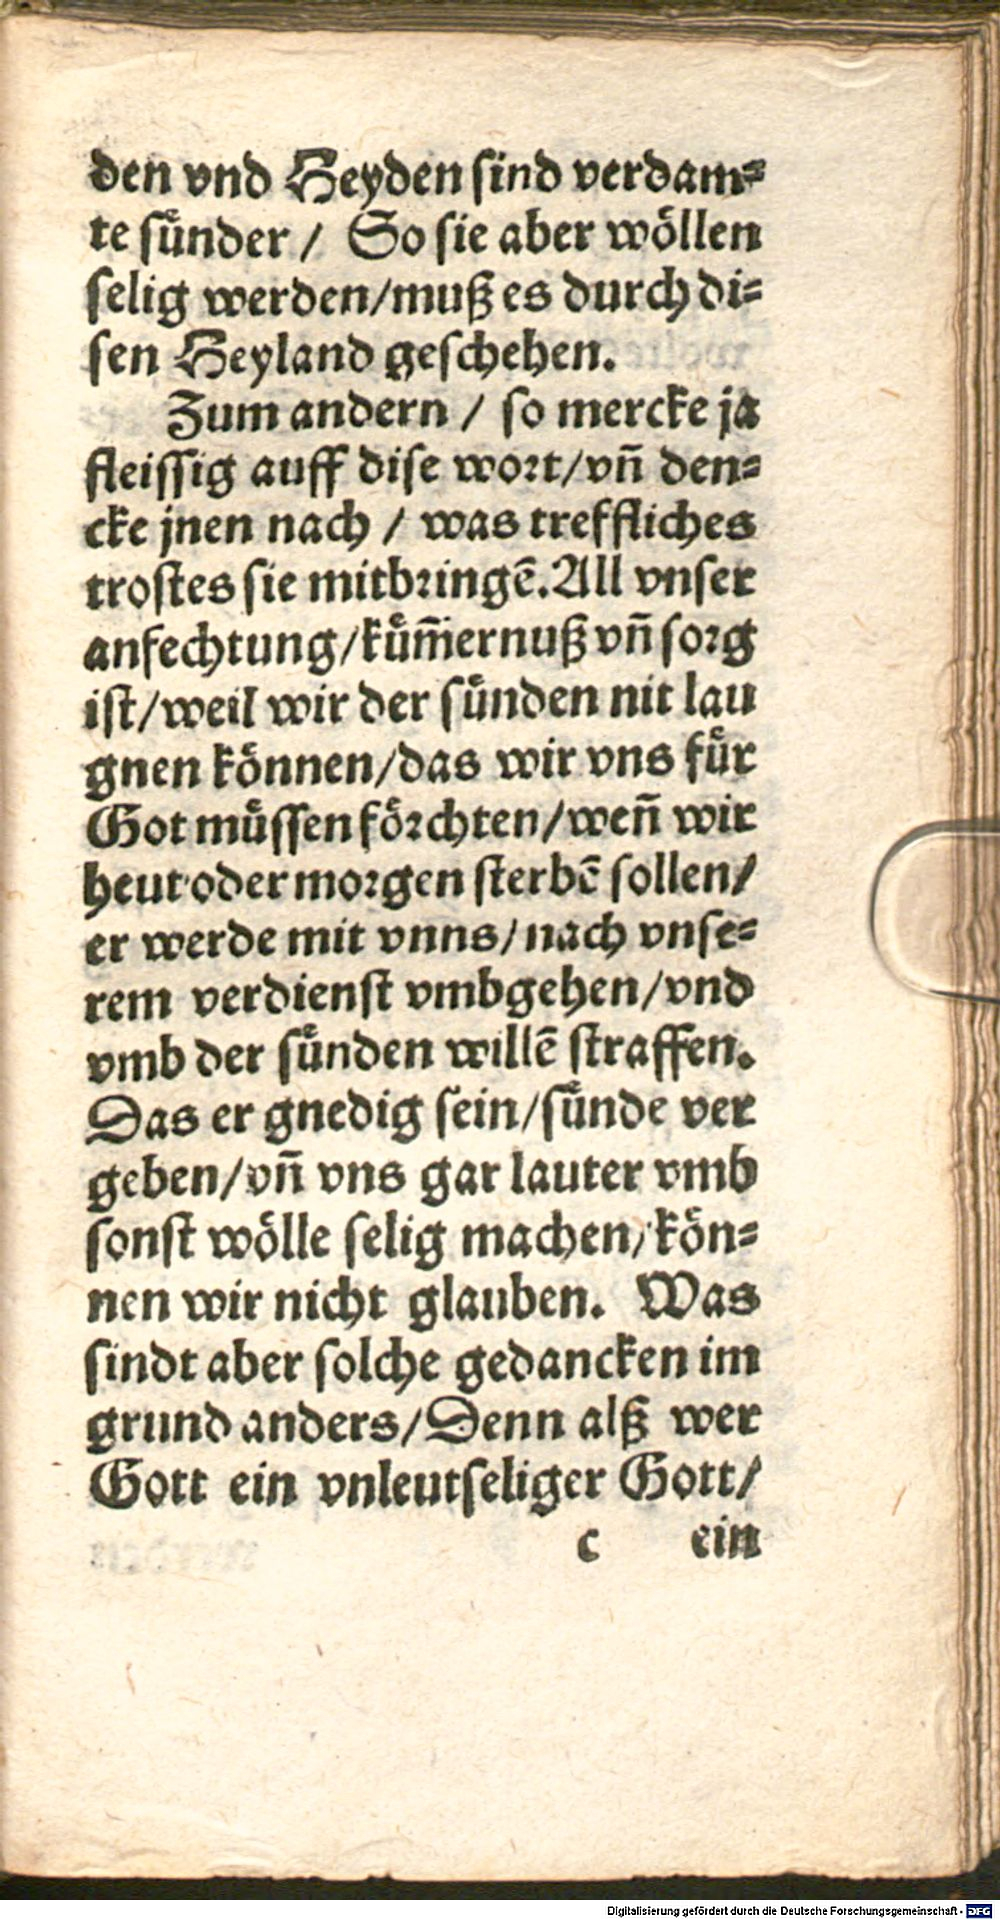 den vnd Heyden sind verdam⸗
te sünder / So sie aber wöllen
selig werden/muß es durch di⸗
sen Heyland geschehen.
Zum andern / so mercke ja
fleissig auff dise wort/vñ den⸗
cke jnen nach / was treffliches
trostes sie mitbringē. All vnser
anfechtung/küm̄ernuß vñ sorg
ist/weil wir der sünden nit lau
gnen können/das wir vns für
Got müssen förchten/weñ wir
heut oder morgen sterbē sollen/
er werde mit vnns/nach vnse⸗
rem verdienst vmbgehen/vnd
vmb der sünden willē straffen.
Das er gnedig sein/sünde ver
geben/vñ vns gar lauter vmb
sonst wölle selig machen/kön⸗
nen wir nicht glauben. Was
sindt aber solche gedancken im
grund anders/Denn alß wer
Gott ein vnleutseliger Gott/
c ein
Digitalisierung gefördert durch die Deutsche Forschungsgemeinschaft - DFG